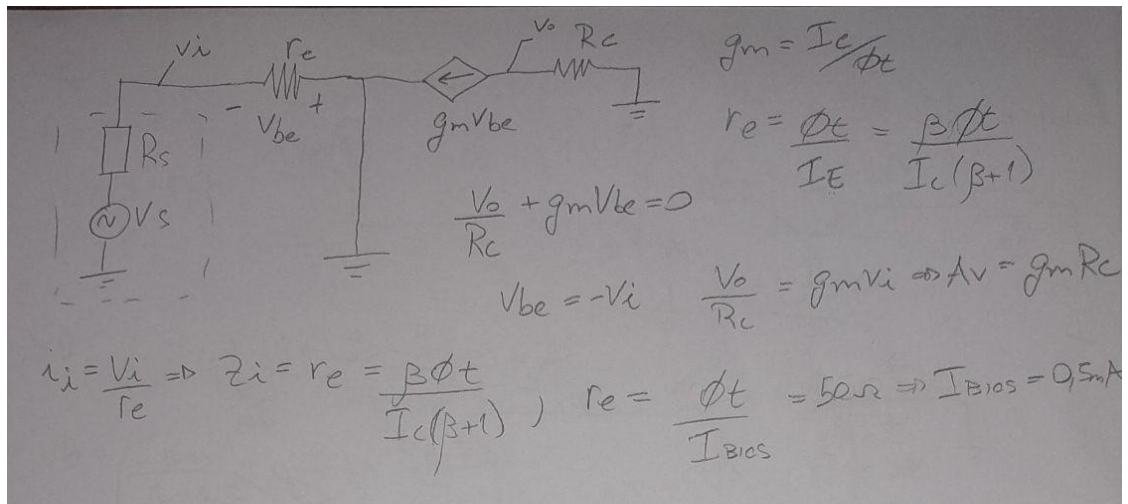 Vi
re
Vo
Rc
gm = Ic/ϕt
- Vbe +
gmVbe
Rs
Vs
re = ϕt/IE = βϕt/Ic(β+1)
Vo/Rc + gmVbe = 0
Vbe = -Vi
Vo/Rc = gmVi ⇒ Av = gmRc
ii = Vi/re ⇒ Zi = re = βϕt/Ic(β+1) , re = ϕt/IBIOS = 50Ω ⇒ IBIOS = 0,5mA